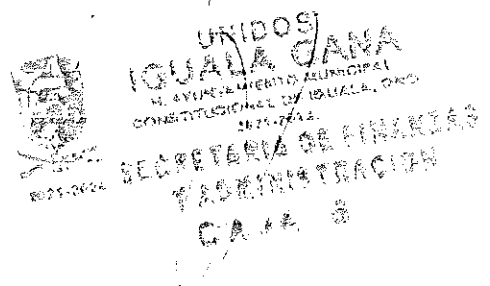 UNIDOS
IGUALA GANA
H. AYUNTAMIENTO MUNICIPAL
CONSTITUCIONAL DE IGUALA, GRO.
2021-2024.
SECRETARIA DE FINANZAS
Y ADMINISTRACION
CAJA
2021-2024